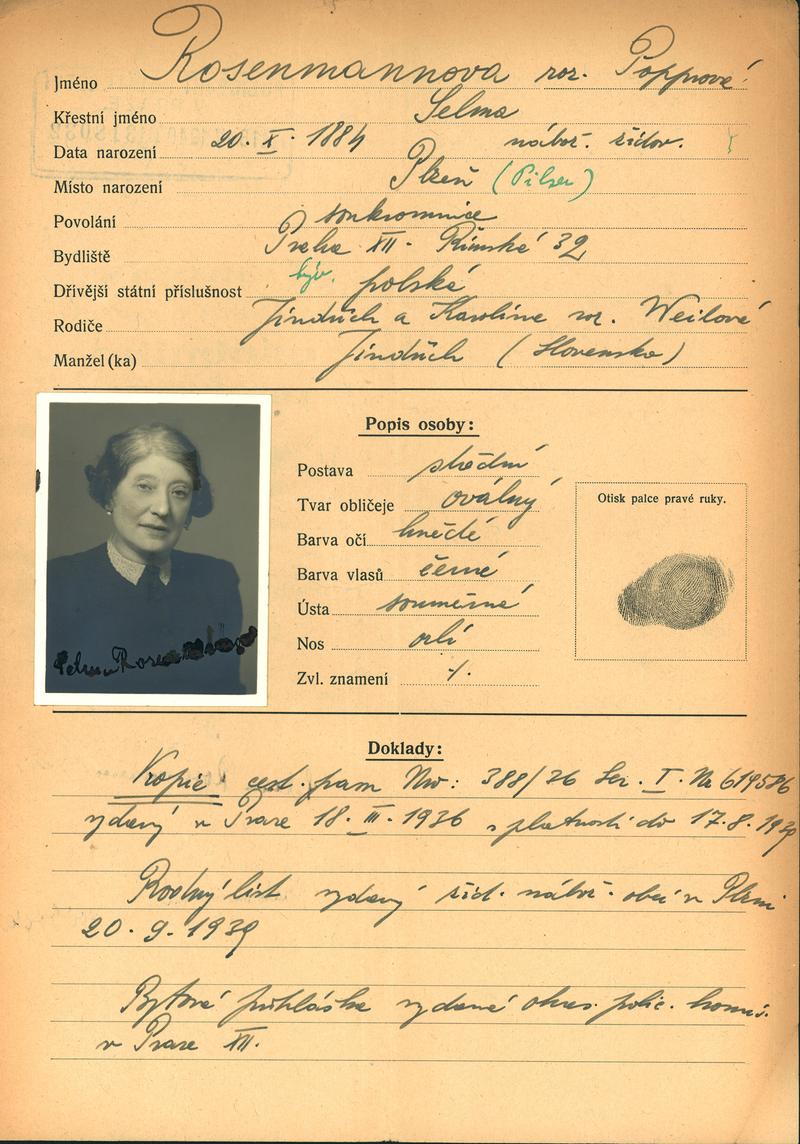 Jméno Rosenmannova roz. Popprové
Křestní jméno Selma
Data narození 20. X. 1884 nábož. židov.
Místo narození Plzeň (Pilsen)
Povolání soukromnice
Bydliště Praha XII. Římská 32
Dřívější státní příslušnost býv. polská
Rodiče Jindřich a Karoline roz. Weilové
Manžel (ka) Jindřich (Slovensko)
Popis osoby:
Postava střední
Tvar obličeje oválný
Barva očí hnědé
Barva vlasů černé
Ústa souměrné
Nos orlí
Zvl. znamení
Otisk palce pravé ruky.
Selma
Doklady:
Kopie cest. pasu 388/36 Ser. I. Nr
vydaný v Praze 18. III. 1936 s platností do 17. 8. 1939
Rodný list vydaný žid. nábož. obcí v Plzni
20. 9. 1939
Bytová přihláška vydaná okres. polic. komis.
v Praze XII.